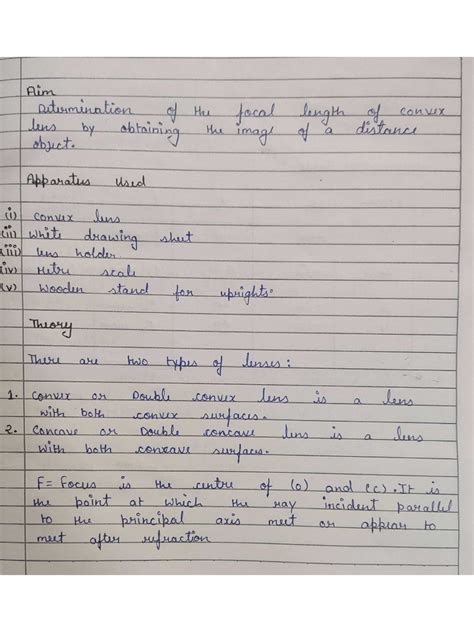 Aim
Determination of the focal length of convex
lens by obtaining the image of a distance
object.
Apparatus used
(i) convex lens
(ii) White drawing sheet
(iii) lens holder
(iv) Metre scale
(v) Wooden stand for uprights.
Theory
There are two types of lenses:
1. Convex or Double convex lens is a lens
with both convex surfaces.
2. Concave or Double concave lens is a lens
with both concave surfaces.
F= Focus is the centre of (O) and (C). It is
the point at which the ray incident parallel
to the principal axis meet or appear to
meet after refraction